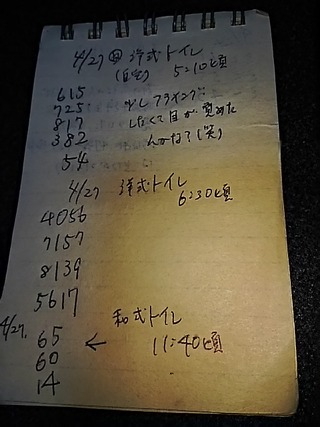 4/27 ㊐ 洋式トイレ
(自宅) 5:10頃
615
725 少しフライング?
817 したくて目が覚めた
382 んかな?(笑)
54
4/27 洋式トイレ
6:30頃
4056
7157
8139
5617
4/27. 和式トイレ
65 ← 11:40頃
60
14